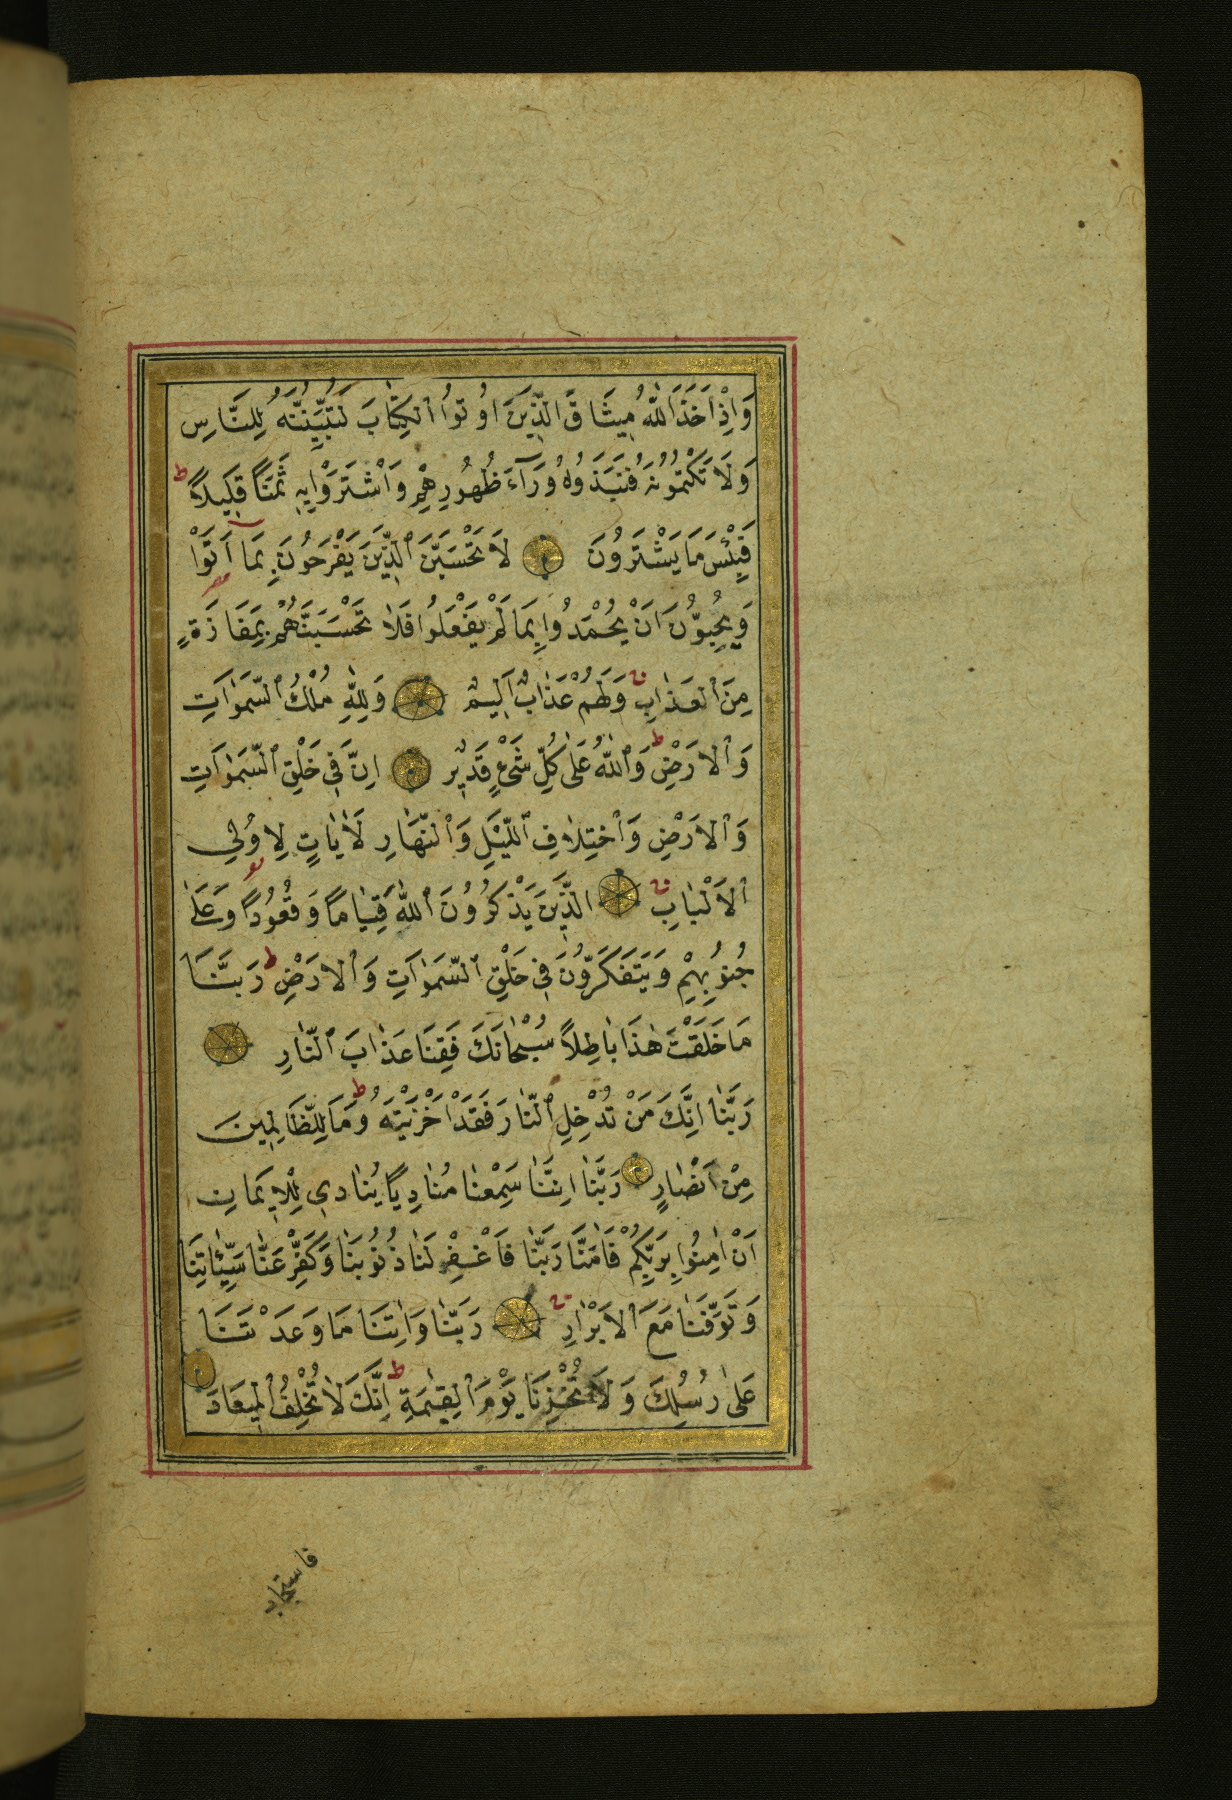 وَاِذْ اَخَذَ اللّٰهُ مِيثَاقَ الَّذِينَ اُوتُوا الْكِتَابَ لَتُبَيِّنُنَّهُ لِلنَّاسِ
وَلَا تَكْتُمُونَهُ فَنَبَذُوهُ وَرَآءَ ظُهُورِهِمْ وَاشْتَرَوْا بِهِ ثَمَنًا قَلِيلًا ط
فَبِئْسَ مَا يَشْتَرُونَ لَا تَحْسَبَنَّ الَّذِينَ يَفْرَحُونَ بِمَا اَتَوْا
وَيُحِبُّونَ اَنْ يُحْمَدُوا بِمَا لَمْ يَفْعَلُوا فَلَا تَحْسَبَنَّهُمْ بِمَفَازَةٍ
مِنَ الْعَذَابِ وَلَهُمْ عَذَابٌ اَلِيمٌ وَلِلّٰهِ مُلْكُ السَّمٰوَاتِ
وَالْاَرْضِ ط وَاللّٰهُ عَلٰى كُلِّ شَىْءٍ قَدِيرٌ اِنَّ فِي خَلْقِ السَّمٰوَاتِ
وَالْاَرْضِ وَاخْتِلَافِ اللَّيْلِ وَالنَّهَارِ لَاٰيَاتٍ لِاُولِي
الْاَلْبَابِ الَّذِينَ يَذْكُرُونَ اللّٰهَ قِيَامًا وَقُعُودًا وَعَلٰى
جُنُوبِهِمْ وَيَتَفَكَّرُونَ فِي خَلْقِ السَّمٰوَاتِ وَالْاَرْضِ ط رَبَّنَا
مَا خَلَقْتَ هٰذَا بَاطِلًا سُبْحَانَكَ فَقِنَا عَذَابَ النَّارِ
رَبَّنَا اِنَّكَ مَنْ تُدْخِلِ النَّارَ فَقَدْ اَخْزَيْتَهُ ط وَمَا لِلظَّالِمِينَ
مِنْ اَنْصَارٍ رَبَّنَا اِنَّنَا سَمِعْنَا مُنَادِيًا يُنَادِي لِلْاِيمَانِ
اَنْ اٰمِنُوا بِرَبِّكُمْ فَاٰمَنَّا رَبَّنَا فَاغْفِرْ لَنَا ذُنُوبَنَا وَكَفِّرْ عَنَّا سَيِّئَاتِنَا
وَتَوَفَّنَا مَعَ الْاَبْرَارِ رَبَّنَا وَاٰتِنَا مَا وَعَدْتَنَا
عَلٰى رُسُلِكَ وَلَا تُخْزِنَا يَوْمَ الْقِيٰمَةِ ط اِنَّكَ لَا تُخْلِفُ الْمِيعَادَ
فاستجاب